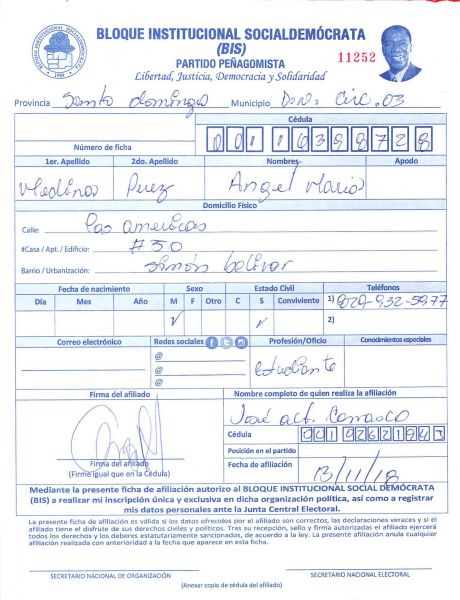 BLOQUE INSTITUCIONAL SOCIALDEMÓCRATA
(BIS)
PARTIDO PEÑAGOMISTA
Libertad, Justicia, Democracia y Solidaridad
11252
Provincia Santo domingo Municipio Circ. 03
Cédula
Número de ficha
1er. Apellido 2do. Apellido Nombres Apodo
Perez Angel Mario
Domicilio Físico
Calle: Las americas
#Casa / Apt. / Edificio: #50
Barrio / Urbanización: Simón bolivar
Fecha de nacimiento Sexo Estado Civil Teléfonos
Día Mes Año M F Otro C S Conviviente 1) 829-932-5977
2)
Correo electrónico Redes sociales Profesión/Oficio Conocimientos especiales
@
@
@
Estudiante
Firma del afiliado Nombre completo de quien realiza la afiliación
José alt. Carrasco
Cédula
Posición en el partido
Fecha de afiliación 13/11/18
Firma del afiliado
(Firme igual que en la Cédula)
Mediante la presente ficha de afiliación autorizo al BLOQUE INSTITUCIONAL SOCIAL DEMÓCRATA
(BIS) a realizar mi inscripción única y exclusiva en dicha organización política, así como a registrar
mis datos personales ante la Junta Central Electoral.
La presente ficha de afiliación es válida si los datos ofrecidos por el afiliado son correctos, las declaraciones veraces y si el
afiliado tiene el disfrute de sus derechos civiles y políticos. Tras su recepción, sello y firma autorizados el afiliado ejercerá
todos los derechos y los deberes estatutariamente sancionados, de acuerdo a la ley. La presente afiliación anula cualquier
afiliación realizada con anterioridad a la fecha que aparece en esta ficha.
SECRETARIO NACIONAL DE ORGANIZACIÓN SECRETARIO NACIONAL ELECTORAL
(Anexar copia de cédula del afiliado)